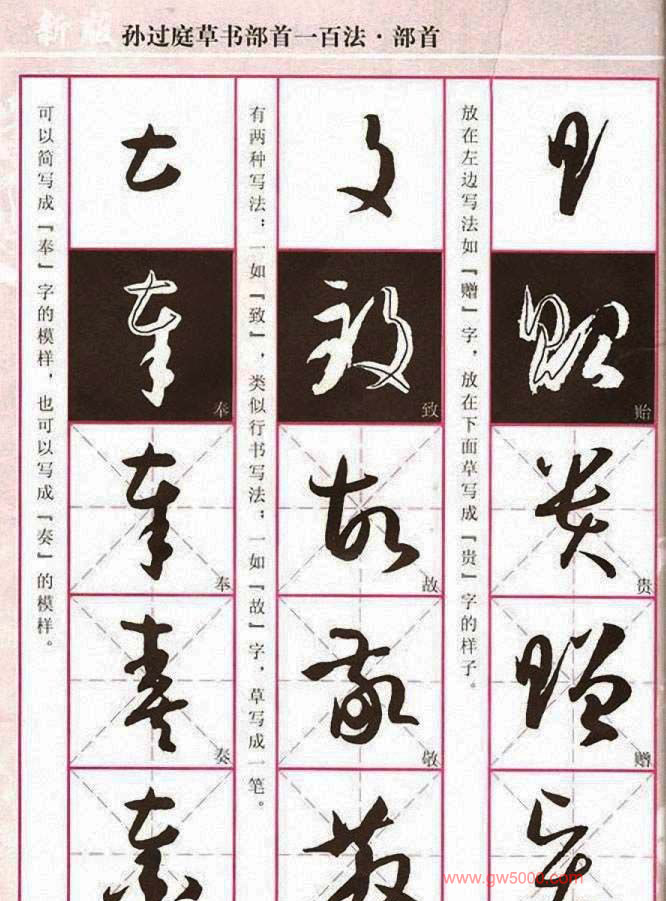 新版 孙过庭草书部首一百法·部首
放在左边写法如『赠』字，放在下面草写成『贵』字的样子。
贻
贵
赠
有两种写法：一如『致』，类似行书写法；一如『故』字，草写成一笔。
致
故
敬
可以简写成『奉』字的模样，也可以写成『奏』的模样。
奉
奉
奏
www.gw5000.com